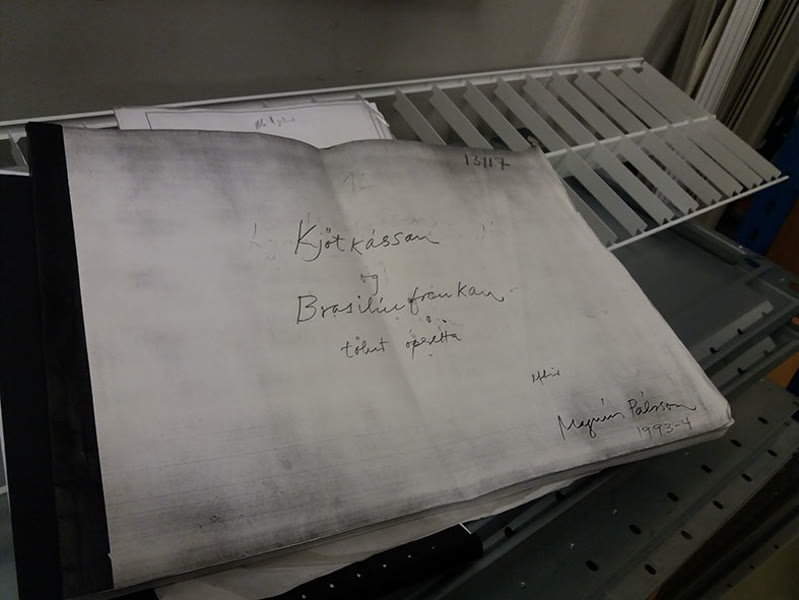 13117
12
Kjötkássan
og
Brasilíufronkan
tölvt óperetta
Magnús Pálsson
1993-4